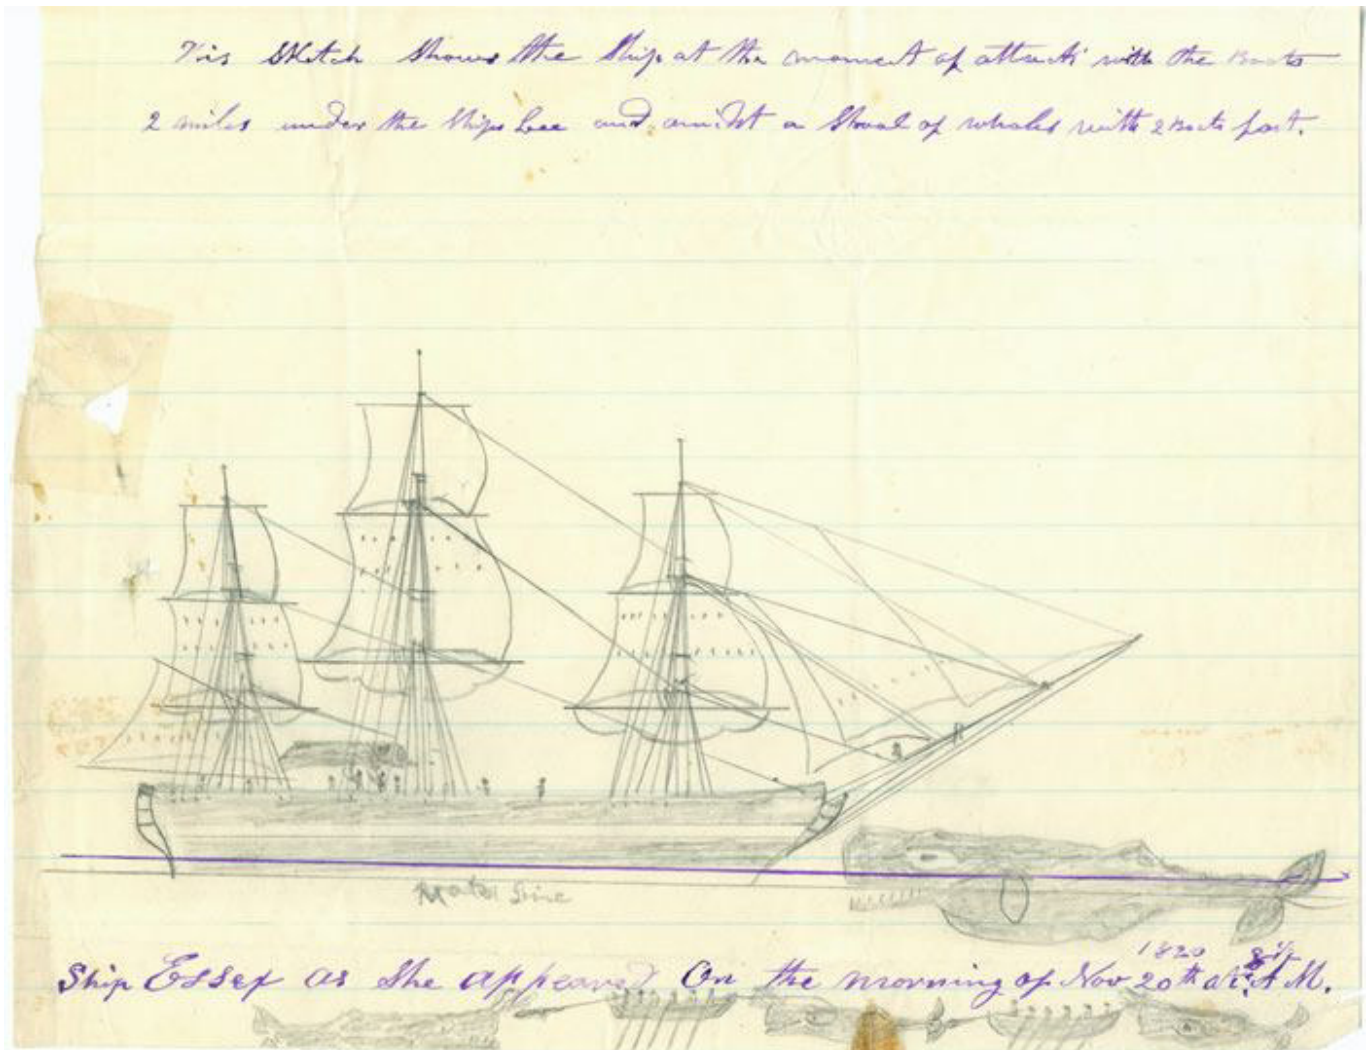 This Sketch Shows the Ship at the moment of attack with the Boats
2 miles under the Ships Lee and amidst a Shoal of whales with 2 Boats fast.
Water Line
Ship Essex as She appeared On the morning of Nov 20th at A.M.
1820